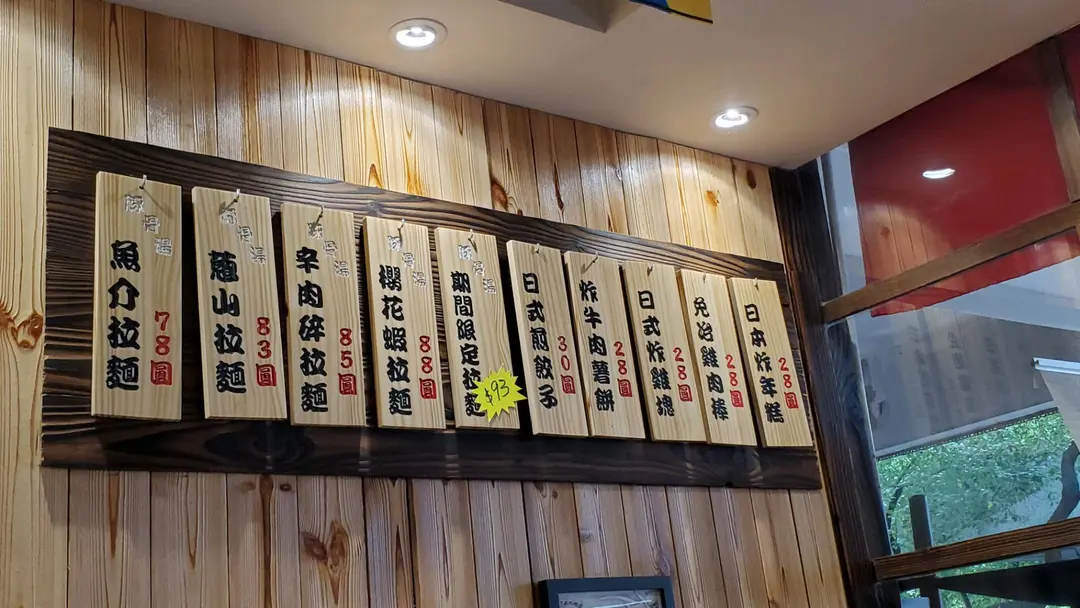 豚骨湯
魚介拉麵
78圓
豚骨湯
龍山拉麵
83圓
豚骨湯
辛肉碎拉麵
85圓
豚骨湯
櫻花蝦拉麵
88圓
豚骨湯
期間限定拉麵
$93
日式煎餃子
30圓
炸牛肉薯餅
28圓
日式炸雞塊
28圓
免治雞肉棒
28圓
日本炸年糕
28圓